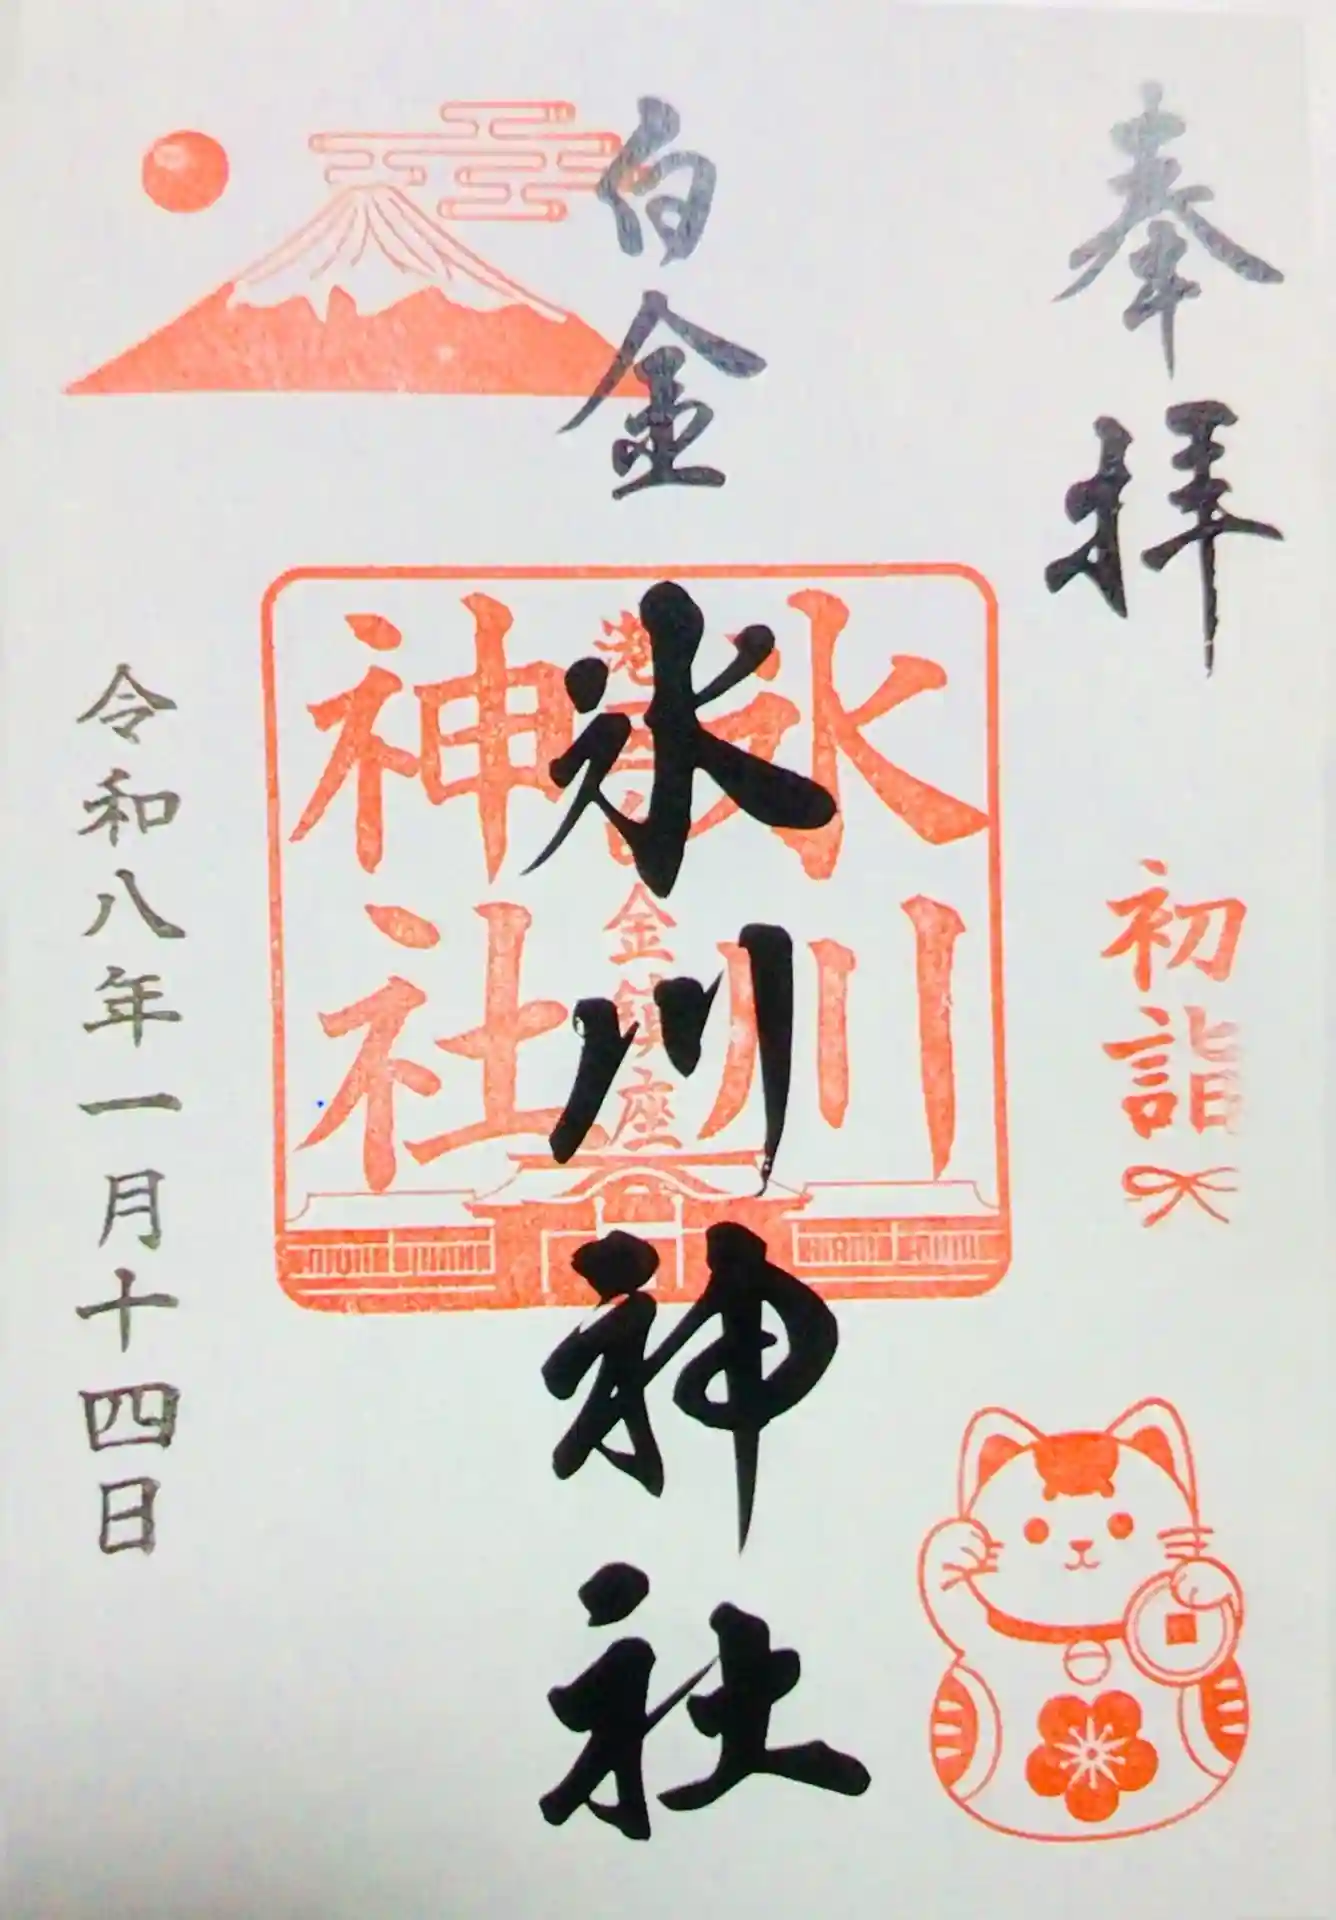 奉拝
初詣
白金
氷川神社
氷川
港区白金鎮座
神社
令和八年一月十四日